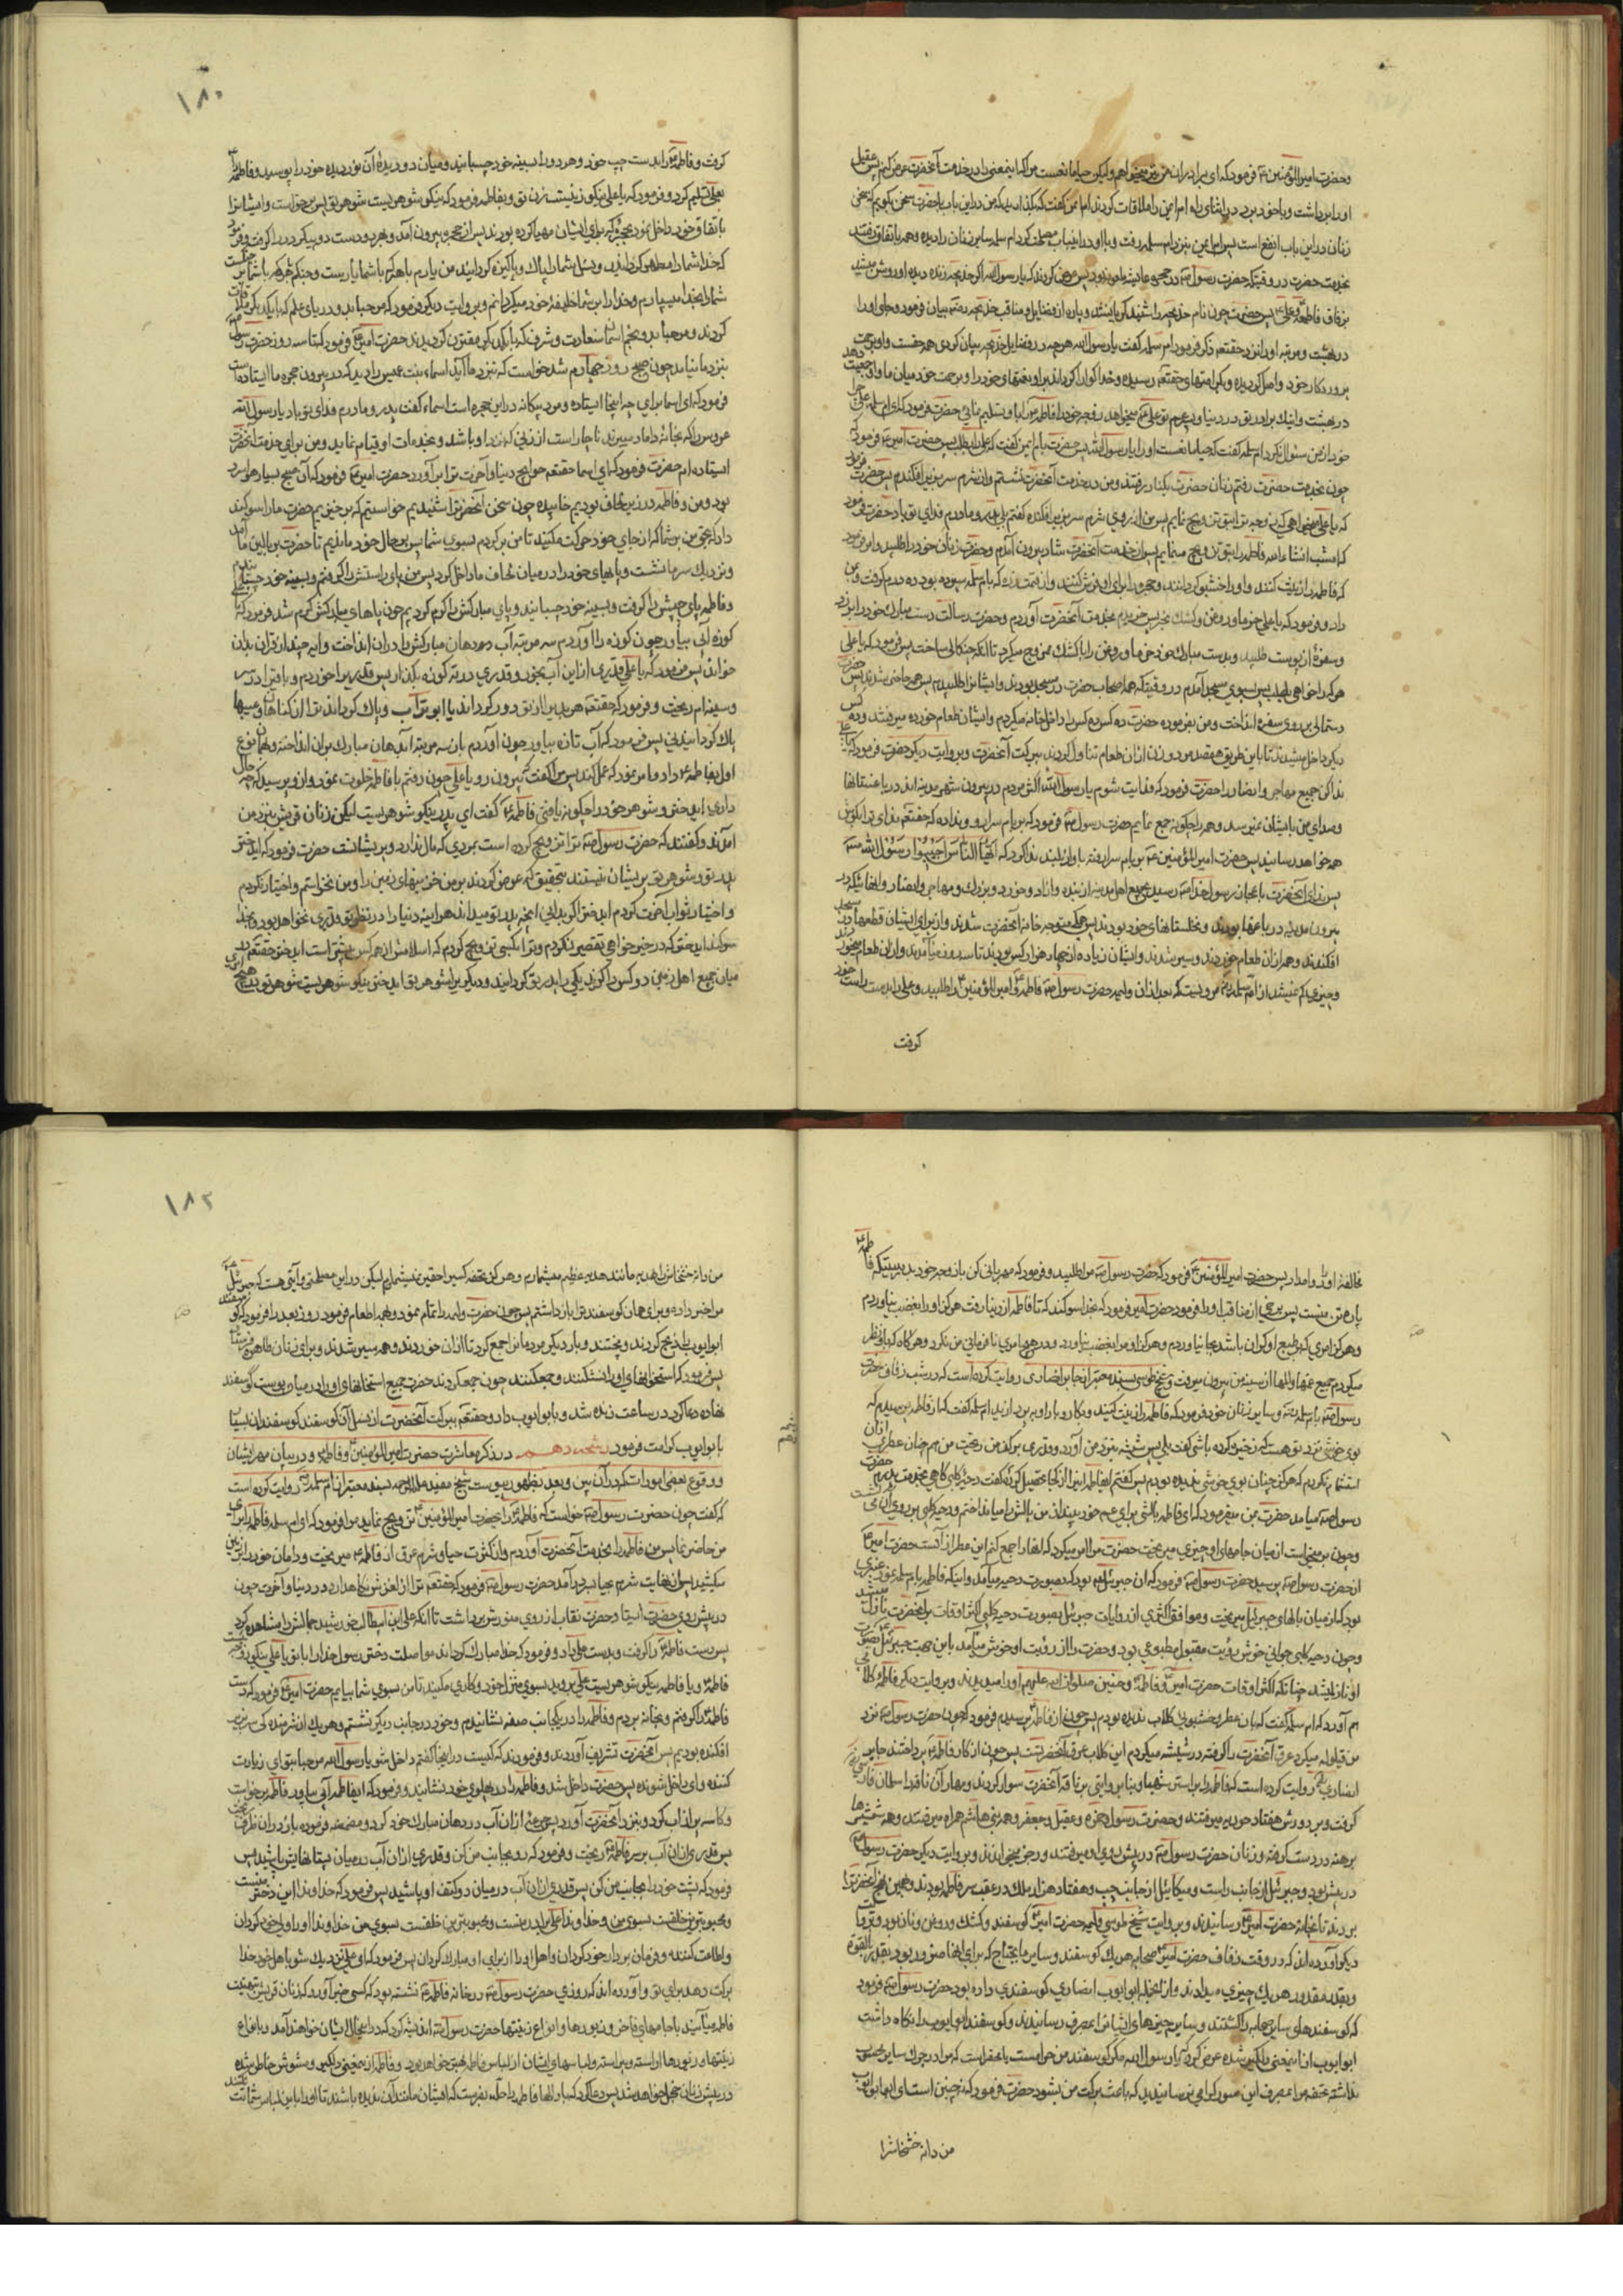 و حضرت امیر المؤمنین ع فرمود که ای برادر ان من نیز میخواهم ولیکن حیا مانعست مرا که اینمعنی را در خدمت آنحضرت عرض کنم پس عقیل
او را برداشت و با خود برد در اثنای راه ام ایمن را ملاقات کردند ام ایمن گفت که بگذارید که من در این باب با حضرت سخن بگویم که سخن
زنان در این باب انفع است پس ام ایمن بنزد ام سلمه رفت و با او در اینباب مصلحت کرد ام سلمه سایر زنان را دیده و همه باتفاق رفتند
بخدمت حضرت در وقتیکه حضرت رسول ص در حجره عایشه بود پس عرض کردند که یا رسول الله اگر خدیجه زنده دیده او روشن میشد
بزفاف فاطمه و علی پس حضرت چون نام خدیجه را شنید گریست و پاره از فضایل و مناقب خدیجه بیان فرمود و جای او را
در بهشت و مرتبه او را نزد حقتعم ذکر فرمود ام سلمه گفت یا رسول الله هر چه در فضایل خدیجه بیان کردی همه حقست و او برحمت
پروردگار خود واصل گردیده و بکرامتهای حقتعم رسیده و خدا گوارا گرداند بر او نعمتهای خود را و برحمت خود میان ما و او جمعیت دهد
در بهشت و اینک برادر تو در دنیا و پسر عم تو علی میخواهد زوجه خود فاطمه را باو تسلیم نمائی حضرت فرمود که ای ام سلمه علی چرا
خود از من سئوال نکرد ام سلمه گفت که حیا مانعست او را یا رسول الله پس حضرت بام ایمن گفت که علی را بطلب پس حضرت امیر ع فرمود که
چون بخدمت حضرت رفتم زنان حضرت بکنار رفتند و من در خدمت آنحضرت نشستم و از شرم سر بزیر افکندم پس حضرت فرمود
که یا علی میخواهی که زوجه ترا بتو تزویج نمایم پس من از روی شرم سر بزیر افکنده گفتم بلی پدر و مادرم فدای تو باد حضرت فرمود
که امشب انشاءالله فاطمه را بتو تزویج مینمایم پس از خدمت آنحضرت شاد بیرون آمدم و حضرت زنان خود را طلبید و امر فرمود
که فاطمه را زینت کنند و او را خشبو گردانند و حجره را برای او فرش کنند و از قیمت زره که بام سلمه سپرده بود ده درم گرفت و بمن
داد و فرمود که یا علی خرما و روغن و کشک بخر پس خریدم بخدمت آنحضرت آوردم و حضرت رسالت دست مبارک خود را بر زد
و سفرهٔ از پوست طلبید و بدست مبارک خود خرما و روغن را با کشک ممزوج میکرد تا انکه چنگالی ساخت پس فرمود که یا علی
هر که را خواهی بطلب پس بسوی مسجد آمدم در وقتیکه همه اصحاب حضرت در مسجد بودند و ایشانرا طلبیدم پس همه حاضر شدند پس حضرت
دستمالی بر روی سفره انداخت و من بفرموده حضرت ده کس ده کس را داخل خانه میکردم و ایشان طعام خورده میرفتند و ده کس
دیگر داخل میشدند تا باین طریق هفتصد مرد و زن از ان طعام تناول کردند ببرکت آنحضرت و بروایت دیگر حضرت فرمود که یا علی
ندا کن جمیع مهاجر و انصار را حضرت فرمود که فدایت شوم یا رسول الله اکثر مردم در بیرون شهر مدینه اند در باغستانها
و صدای من بایشان نمیرسد و همه را چگونه جمع نمایم حضرت رسول ص فرمود که بر بام سرا رو و ندا ده که حقتعم ندای ترا بگوش
همه خواهد رسانید پس حضرت امیر المؤمنین ع بر بام سرا رفته باواز بلند ندا کرد که اَیُّهَا النّاسُ اَجیبُوا رَسُولَ اللهِ ص
پس ندای آنحضرت باعجاز رسول خدا ص رسید بجمیع اهل مدینه از بنده و ازاد و خورد و بزرک و مهاجر و انصار و انهائیکه در
بیرون مدینه در باغها بودند و نخلستانهای خود بودند پس همه متوجه خانهٔ آنحضرت شدند و از برای ایشان قطعها در مسجد
افکندند و همه از ان طعام خوردند و سیر شدند و ایشان زیاده از چهار هزار کس بودند تا سه روز میآمدند و از ان طعام میخوردند
و چیزی کم نمیشد از آن مرویست که بعد از ان ولیمه حضرت رسول ص فاطمه و امیر المؤمنین را طلبید و علی را بدست راست خود
گرفت
۱۸۰
گرفت و فاطمه را بدست چپ خود و هر دو را بسینه خود چسبانید و میان دو دیدهٔ آن نور دیده خود را بوسید و فاطمه را
بعلی تسلیم کرد و فرمود که یا علی نیکو زنیست زن تو و بفاطمه فرمود که نیکو شوهریست شوهر تو پس برخواست و ایشانرا
با تفاق خود داخل نمود بحجرهٔ که برای ایشان مهیا کرده بودند پس از حجره بیرون آمد و بهر دو دست دو پیکر در را گرفت و فرمود
که خدا شما را مطهر گرداند و نسل شما را پاک و پاکیزه گرداند من یارم با هر که با شما یار است و جنگم با هر که با شما جنگست
شما را بخدا میسپارم و خدا را بر شما خلیفهٔ خود میگردانم و بروایت دیگر فرمود که مرحبا بدو دریای علم که با یکدیگر ملاقات
کردند و مرحبا بدو نجم آسمان سعادت و شرف که با یکدیگر مقترن گردیدند حضرت امیر ع فرمود که تا سه روز حضرت رسول ص
بنزد ما نیامد چون صبح روز چهارم شد خواست که بنزد ما آید اسماء بنت عمیس را دید که در بیرون حجره ما ایستاده است
فرمود که ای اسما برای چه اینجا ایستاده و مرد بیگانه در این حجره است اسماء گفت پدر و مادرم فدای تو باد یا رسول الله
عروس را که بخانهٔ داماد میبرند ناچار است از زنی که نزد او باشد و بخدمات او قیام نماید و من برای خدمت آنحضرت
ایستاده ام حضرت فرمود که ای اسما حقتعم حوایج دنیا و آخرت ترا برآورد حضرت امیر ع فرمود که آن صبح بسیار هوا سرد
بود و من و فاطمه در زیر لحاف بودیم خابیده چون سخن آنحضرترا شنیدیم خواستیم که برخیزیم حضرت ما را سوگند
داد که بحق من بر شما که از جای خود حرکت مکنید تا من برگردم بسوی شما پس بر حال خود ماندیم تا حضرت ببالین ما آمد
و نزدیک سر ما نشست و پایهای خود را در میان لحاف ما داخل کرد پس من پای راستش را گرفتم و بسینه خود چسبانیدم
و فاطمه پای چپش را گرفت و بسینه خود چسبانید و پای مبارکش را گرم کردیم چون پاهای مبارکش گرم شد فرمود که یا علی
کوزه آبی بیاور چون کوزه را آوردم سه مرتبه آب دهان مبارکش را در ان انداخت و ایه چند از قران بر ان
خواند پس فرمود که یا علی قدری از این آب بخور و قدری در ته کوزه بگذار پس قدریرا خوردم و باقیرا بر سر
و سینه ام ریخت و فرمود که حقتعم هر بدیرا از تو دور گرداند یا ابو تراب و پاک گرداند ترا از گناهان و عیبها
پاک گردانیدنی پس فرمود که آب تازه بیاور چون آوردم باز سه مرتبه آبدهان مبارک در ان انداخته و بهمان نوع
اول بفاطمه ع داد و امر نمود که عمل کند پس مرا گفت که بیرون رو یا علی چون رفتم با فاطمه خلوت نمود و از او پرسید که چه حال
داری ایدختر و شوهر خود را چگونه یافتی فاطمه گفت ای پدر نیکو شوهریست لیکن زنان قریش بنزد من
آمدند و گفتند که حضرت رسول ص ترا تزویج کرده است بمردی که مال ندارد و پریشانست حضرت فرمود که ایدختر
پدر تو و شوهر تو پریشان نیستند بتحقیق که عرض کردند بر من خزینهای زمین را و من نخواستم و اختیار نکردم
و اختیار ثواب آخرت کردم ایدختر اگر بدانی انچه پدر تو میداند هراینه دنیا را در نظر تو قدری نخواهد بود و بخدا
سوگند ایدختر که در خیر خواهی تقصیر نکردم و ترا بکسی تزویج کردم که اسلامش از همه کس پیشتر است ایدختر حقتعم
میان جمیع اهل زمین دو کس را گزید یکیرا پدر تو گردانید و دیگریرا شوهر تو ایدختر نیکو شوهریست شوهر تو در هیچ امری
مخالفت او را روا مدار پس حضرت امیر المؤمنین ع فرمود که حضرت رسول ص مرا طلبید و فرمود که مهربانی کن با زوجه خود بدرستیکه فاطمه
پارهٔ تن منست پس برخی از مناقب او را فرمود حضرت امیر فرمود که بخدا سوگند که تا فاطمه از دنیا رفت هرگز او را بغضب نیاوردم
و هرگز امری که بر طبع او گران باشد بجا نیاوردم و هرگز او مرا بغضب نیاورد و در هیچ امری نافرمانی من نکرد و هر گاه که باو نظر
میکردم جمیع غمها و المها از سینهٔ من بیرون میرفت و شیخ طوسی بسند معتبر از جابر انصاری روایت کرده است که در شب زفاف حضرت
رسول ص بام سلمه و سایر زنان خود فرمود که فاطمه را زینت کنید
بوی خوشی نزد تو هست که ذخیره کرده باشی گفت بلی پس شیشه بنزد من آورد و قدری بر کف من ریخت من هم چنان عطری
استشمام نکردم که هرگز چنان بوی خوشی نشنیده بودم پس گفتم ایفاطمه اینرا از کجا تحصیل کردهٔ گفت دحیهٔ کلبی گاهی بخدمت پدرم حضرت
رسول ص میامد حضرت بمن میفرمود که ای فاطمه بالشی برای عم خود بینداز من بالش را میانداختم و دحیه کلبی بر روی آن می نشست
و چون بر میخواست از میان جامهای او چیزی میریخت حضرت مرا امر میکرد که انها را جمع کنم این عطر از آنست حضرت امیر ع
از حضرت رسول ص پرسید حضرت رسول ص فرمود که ان جبرئیل بود که بصورت دحیه میآمد و اینکه فاطمه بام سلمه نمود عنبری
بود که از میان بالهای جبرئیل میریخت و موافق اکثری از روایات جبرئیل بصورت دحیه کلبی اکثر اوقات بر آنحضرت نازل میشد
و چون دحیه کلبی جوانی خوش رؤیت مقبول مطبوعی بود و حضرت را از رؤیت او خوش میآمد باین جهت جبرئیل بصورت
او نازل میشد چنانکه اکثر اوقات حضرت امیر و فاطمه و حسنین صلوات الله علیهم او را میدیدند و بروایت دیگر فاطمه گلابی
هم آورد که ام سلمه گفت که بان عطر و خشبوئی گلاب ندیده بودم پس چون از فاطمه پرسیدم فرمود که چون حضرت رسول ص نزد
من قیلوله میکرد عرق آنحضرترا گرفته در شیشه میکردم این گلاب عرق آنحضرتست پس چون از کار فاطمه پرداختند جابر
انصاری روایت کرده است که فاطمه را بر استر شهبا و بنا بر وایتی بر ناقهٔ آنحضرت سوار کردند و مهار آن ناقه را سلمان فارسی
گرفت و بر دورش هفتاد حوریه میرفتند و حضرت رسول و حمزه و عقیل و جعفر و همه بنی هاشم همراه میرفتند و همه شمشیرها
برهنه در دست گرفته و زنان حضرت رسول ص در پیش روی او میرفتند و رجز میخواندند و بروایت دیگر حضرت رسول ص
در پیش بود و جبرئیل از جانب راست و میکائیل از جانب چپ و هفتاد هزار ملک در عقب سر فاطمه بودند
بردند تا بخانهٔ حضرت امیر رسانیدند و بروایت شیخ طوسی ولیمهٔ حضرت امیر گوسفند و کشک و روغن و نان بود
دیگر آورده اند که در وقت زفاف حضرت امیر صحابه هر یک گوسفند و سایر ما یحتاج که برای انها ضرور بود بقدر القوه
و بقدر مقدور هر یک چیزی میدادند و از انجمله ابو ایوب انصاری گوسفندی داده بود حضرت رسول ص فرمود
که گوسفندهای سایر صحابه را کشتند و سایر چیزهای ایشانرا بمصرف رسانیدند و گوسفند ابو ایوب را نگاه داشت
ابو ایوب از اینمعنی دلگیر شده عرض کرد که یا رسول الله مگر گوسفند من حرامست یا محقر است
من دانه خشخاشرا
۱۸۲
من دانه خشخاش را هدیه مانند هدیه عظیم میشمارم و هرگز تحفه کسیرا حقیر نمیشمارم لیکن در این مصلحتی و آیتی هست که جبرئیل
مرا خبر داده و برای همان گوسفند ترا باز داشتم پس چون حضرت ولیمه را تمام نمود و همه را طعام فرمود روز بعد را فرمود که گوسفند
ابو ایوب را ذبح کردند و پختند و بار دیگر مردمانرا جمع کرد تا از ان خوردند و همه سیر شدند و برای زنان طاهره فرستاد
پس فرمود که استخوانهای او را نشکنند و جمع کنند چون جمع کردند حضرت جمیع استخوانهای او را در میان پوست گوسفند
نهاده دعا کرد در ساعت زنده شد و بابو ایوب داد و حقتعم ببرکت آنحضرت از نسل آن گوسفند گوسفندان بسیار
بابو ایوب کرامت فرمود رشحه دهم در ذکر معاشرت حضرت امیر المؤمنین و فاطمه و در بیان مهر ایشان
و وقوع بعضی امورات که در آن بین و بعد بظهور پیوست شیخ مفید علیه الرحمه بسند معتبر از ام سلمه روایت کرده است
که گفت چون حضرت رسول ص خواست که فاطمه را بحضرت امیر المؤمنین تزویج نماید مرا فرمود که ای ام سلمه فاطمه را برای
من حاضر نما پس من فاطمه را بخدمت آنحضرت آوردم و از کثرت حیا و شرم عرق از فاطمه ع میریخت و دامان خود را بر زمین
میکشید حضرت رسول ص فرمود که حقتعم ترا از لغزش نگاهدارد در دنیا و آخرت چون
در پیش روی حضرت ایستاد حضرت نقاب از روی منورش برداشت تا آنکه علی ابن ابیطالب خورشید جمالش را مشاهده کرد
پس دست فاطمه را گرفت و بدست علی داد و فرمود که خدا مبارک گرداند مواصلت دختر رسول خدا را با تو یا علی نیکو زوجه ایست
فاطمه و یا فاطمه نیکو شوهریست علی بروید بسوی منزل خود و کاری مکنید تا من بسوی شما بیایم حضرت امیر ع فرمود که دست
فاطمه را گرفتم و بخانه بردم و فاطمه را در یکجانب صفه نشانیدم و خود در جانب دیگر نشستم و هر یک از شرم دیگری سر بزیر
افکنده بودیم پس آنحضرت تشریف آوردند و فرمودند که کیست در اینجا گفتم داخل شو یا رسول الله مرحبا بتو ای زیارت
کننده و ای داخل شونده پس حضرت داخل شد و فاطمه را در پهلوی خود نشانید و فرمود که ایفاطمه آبی بیاور فاطمه برخواست
و کاسه پر از آب کرد و بنزد آنحضرت آورد پس جرعهٔ از ان آب در دهان مبارک خود کرد و مضمضه فرموده باز در ان ظرف ریخت
پس قدری از ان آب بر سر فاطمه ریخت و فرمود که رو بجانب من کن و قدری از ان آب در میان پستانهایش پاشید پس
فرمود که پشت خود را بجانب من کن پس قدری از ان آب در میان دو کتف او پاشید پس فرمود که خداوندا این دختر منست
و محبوبترین خلقست بسوی من و خداوندا علی برادر منست و محبوبترین خلقست بسوی من خداوندا او را ولی خود گردان
و اطاعت کننده و فرمان بردار خود گردان و اهل او را از برای او مبارک گردان پس فرمود که ای علی نزدیک شو با اهل خود خدا
برکت دهد برای تو و آورده اند که روزی حضرت رسول ص در خانه فاطمه ع نشسته بود که کسی خبر آورد که زنان قریش بتهنیت
فاطمه میآیند با جامهای فاخر و زیورها و انواع زینتها حضرت رسول ص اندیشه کرد که در اینحال ایشان خواهند آمد و با انواع
زینتها و زیورها اراسته و پیراسته و لباسهای ایشان از لباس فاطمه بهتر خواهد بود و فاطمه از اینمعنی دلگیر و مشوش خاطر شده
در پیش زنان خجل خواهد شد پس دعا کرد که بار الها فاطمه را حله بفرست که ایشان مانند آن ندیده باشند